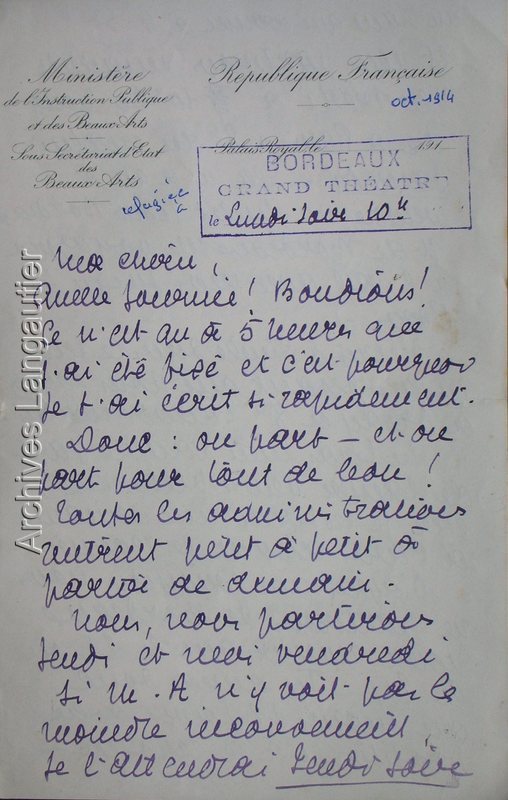 Ministère
de l'Instruction Publique
et des Beaux Arts
Sous Secrétariat d'Etat
des
Beaux Arts
République Française
oct. 1914
Palais Royal le 191
BORDEAUX
GRAND THÉATRE
le Lundi soir 10h
réfugiée
à
Ma chérie,
Quelle journée ! Boudious !
Ce n'est qu'à 5 heures que
j'ai été fixé et c'est pourquoi
je t'ai écrit si rapidement.
Donc : on part – et on
part pour tout de bon !
Toutes les administrations
rentrent petit à petit à
partir de demain.
Nous, nous partirons
Jeudi et non vendredi
si M. A n'y voit pas le
moindre inconvénient,
Je t'attendrai Jeudi soir
Archives Langautier